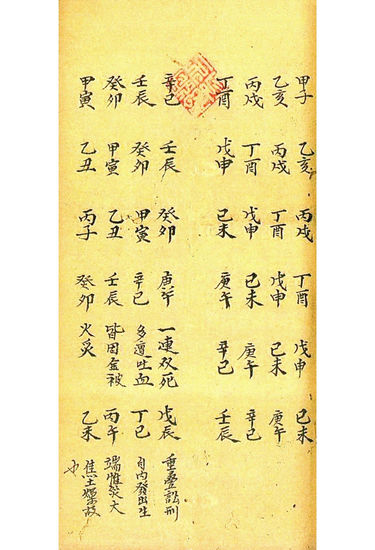 甲子乙亥丙戌丁酉戊申已未
乙亥丙戌丁酉戊申已未庚午
丙戌丁酉戊申已未庚午辛已
丁酉戊申已未庚午辛已壬辰
辛已壬辰癸卯庚午一連双死戊辰重疊訟刑
壬辰癸卯甲寅辛已多遭吐血丁已自内發出生
癸卯甲寅乙丑壬辰皆因金被丙午端惟大
甲寅乙丑丙子癸卯火炙乙未焦土爍故
也